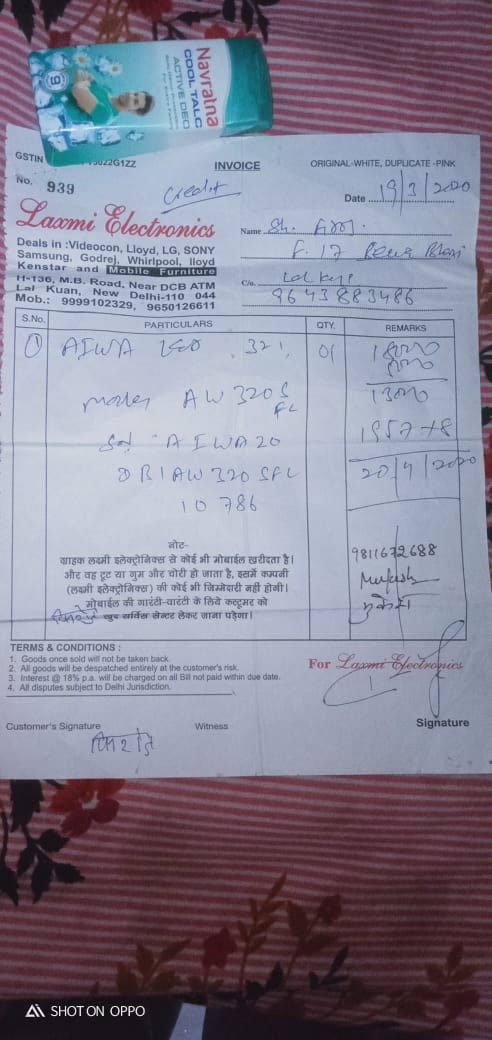 Navratna
COOL TALC
ACTIVE DEO
GSTIN 022G1ZZ
INVOICE
ORIGINAL-WHITE, DUPLICATE -PINK
No. 939
Credit
Date 19/3/2020
Laxmi Electronics
Name Sh.
Deals in :Videocon, Lloyd, LG, SONY
Samsung, Godrej, Whirlpool, lloyd
Kenstar and Mobile Furniture
F. 17
H-136, M.B. Road, Near DCB ATM
Lal Kuan, New Delhi-110 044
C/o.
Mob.: 9999102329, 9650126611
9643883486
S.No. PARTICULARS QTY. REMARKS
1 AIWA LED 32 01 18000
13000
Model AW320S
FL
1957x8
AIWA20
20/4/2020
DB1AW320SFL
10786
नोट-
ग्राहक लक्ष्मी इलेक्ट्रोनिक्स से कोई भी मोबाईल खरीदता है।
और वह टूट या गुम और चोरी हो जाता है, इसमें कम्पनी
(लक्ष्मी इलेक्ट्रोनिक्स) की कोई भी जिम्मेदारी नहीं होगी।
मोबाईल की गारंटी-वारंटी के लिये कस्टूमर को
खुद सर्विस सेन्टर लेकर जाना पड़ेगा।
9811672688
Mukesh
मुकेश
TERMS & CONDITIONS :
1. Goods once sold will not be taken back.
2. All goods will be despatched entirely at the customer's risk.
3. Interest @ 18% p.a. will be charged on all Bill not paid within due date.
4. All disputes subject to Delhi Jurisdiction.
For Laxmi Electronics
Signature
Customer's Signature
Witness
SHOT ON OPPO